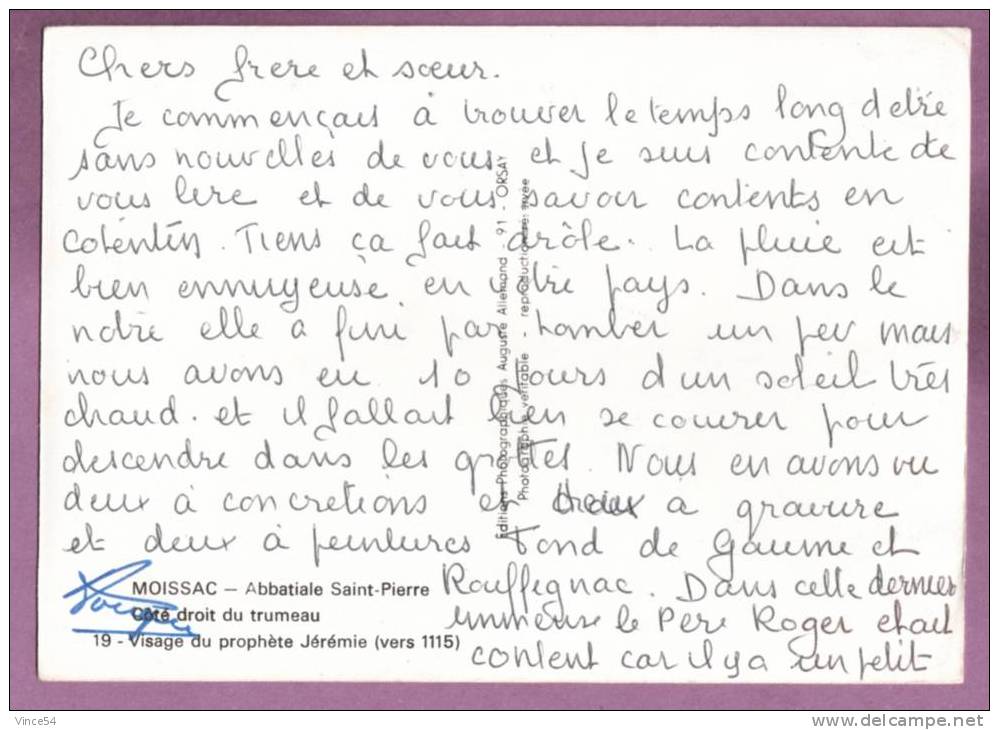 Chers frere et sœur.
Je commençais à trouver le temps long d'etre
sans nouvelles de vous et je suis contente de
vous lire et de vous savoir contents en
Cotentin. Tiens ça fait drôle. La pluie est
bien ennuyeuse en votre pays. Dans le
notre elle a fini par tomber un peu mais
nous avons eu 10 jours d'un soleil très
chaud. et il fallait bien se couvrer pour
descendre dans les grottes. Nous en avons vu
deux à concretions et deux a gravure
et deux à peintures Fond de Gaume et
Rouffignac. Dans cette dernier
immense le Père Roger etait
content car il y a un petit
MOISSAC – Abbatiale Saint-Pierre
Côté droit du trumeau
19 - Visage du prophète Jérémie (vers 1115)
Editions Photographiques Auguste Allemand - 91 - ORSAY
Photographie véritable - reproduction réservée
Vince54
www.delcampe.net